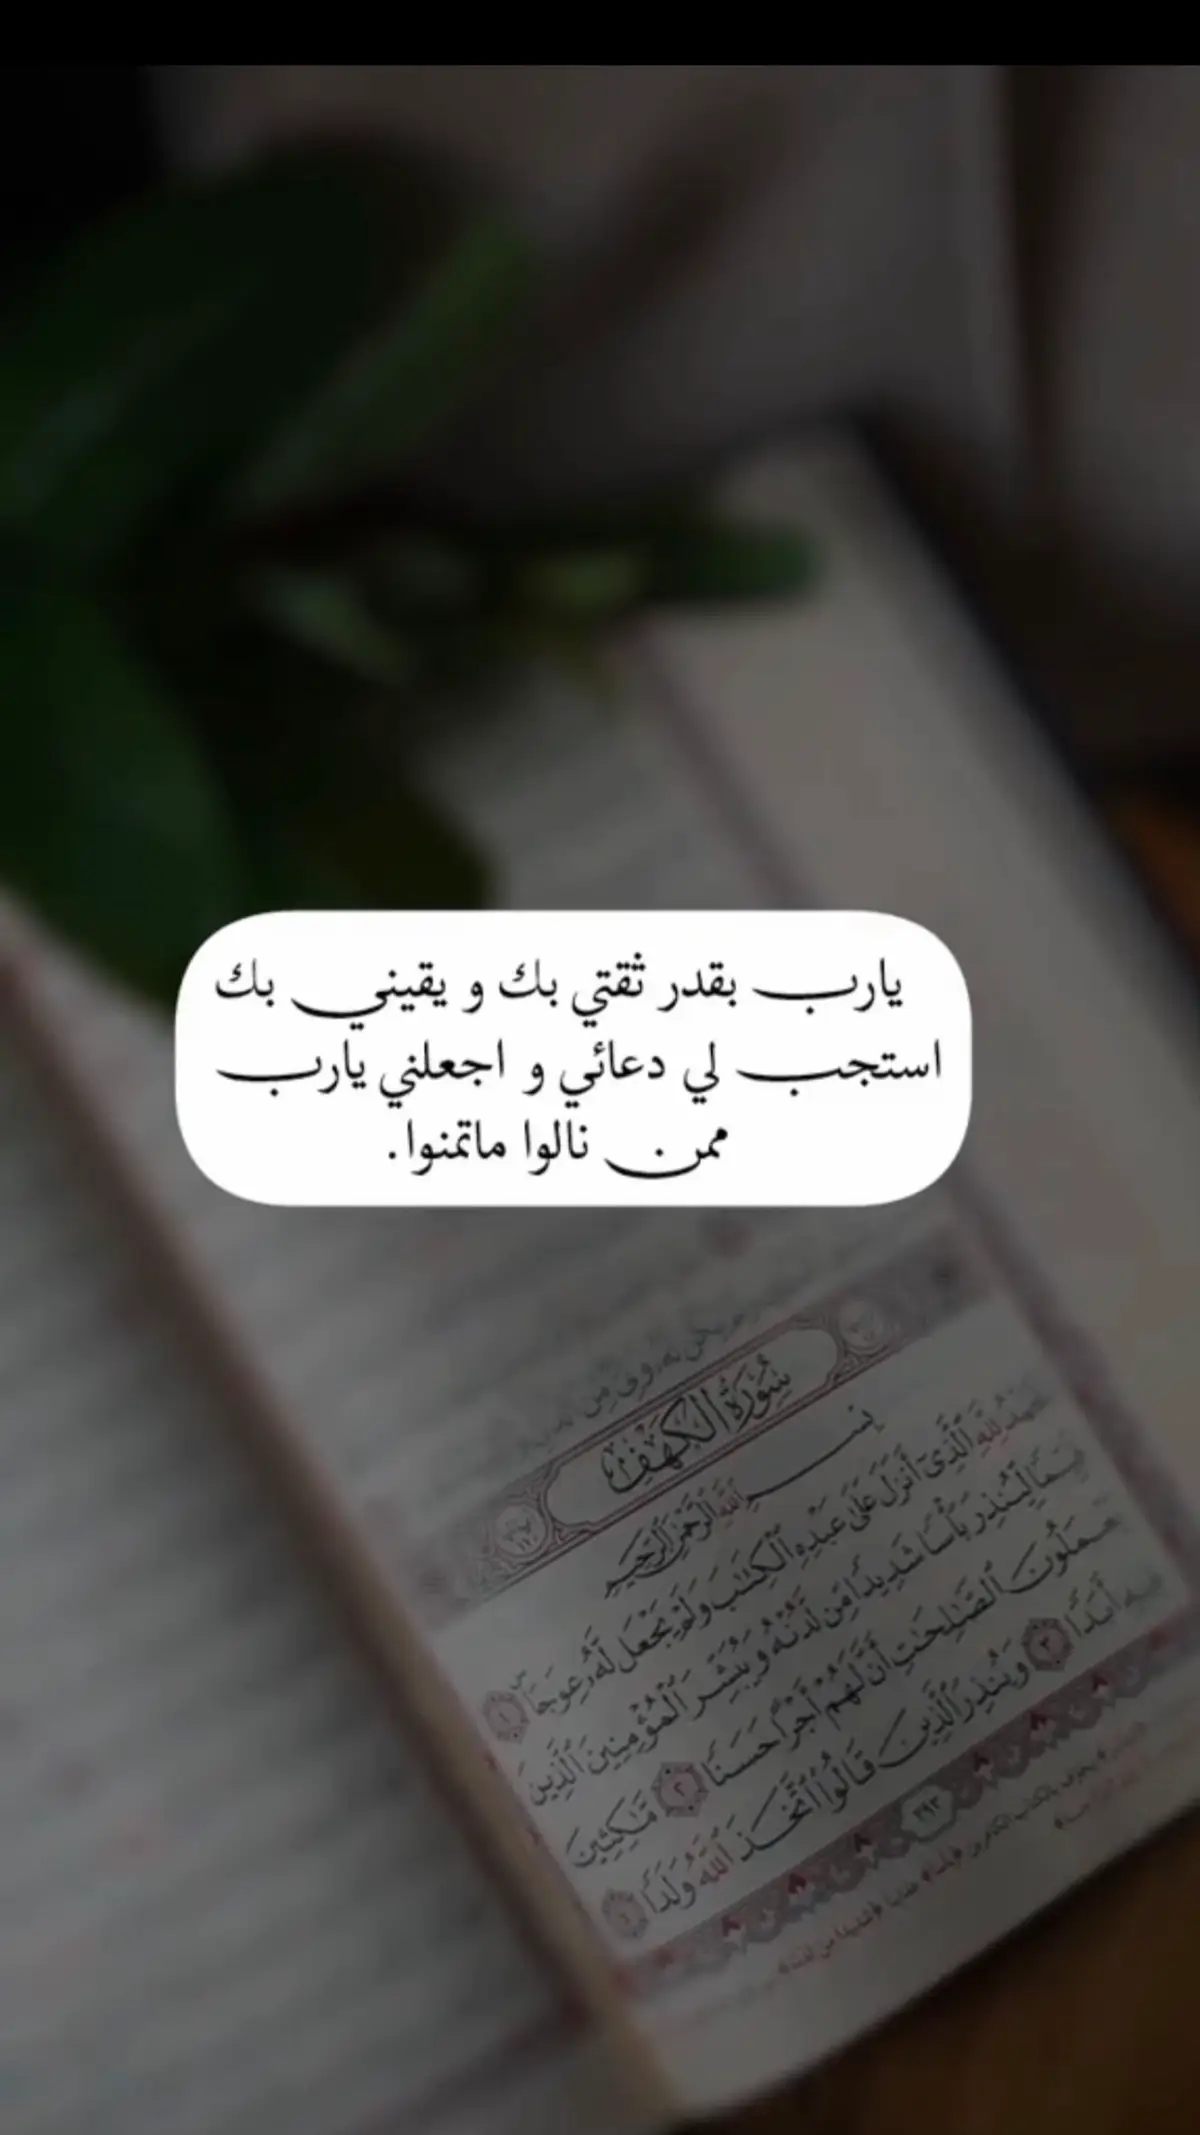 يارب بقدر ثقتي بك و يقيني بك
استجب لي دعائي و اجعلني يارب
ممن نالوا ماتمنوا.
سُورَةُ الكَهْفِ
بِسْمِ اللَّهِ الرَّحْمَٰنِ الرَّحِيمِ
لِلَّهِ الَّذِي أَنزَلَ عَلَىٰ عَبْدِهِ الْكِتَابَ وَلَمْ يَجْعَل لَّهُ عِوَجًا ۜ ١
قَيِّمًا لِّيُنذِرَ بَأْسًا شَدِيدًا مِّن لَّدُنْهُ وَيُبَشِّرَ الْمُؤْمِنِينَ الَّذِينَ
يَعْمَلُونَ الصَّالِحَاتِ أَنَّ لَهُمْ أَجْرًا حَسَنًا ٢ مَّاكِثِينَ
فِيهِ أَبَدًا ٣ وَيُنذِرَ الَّذِينَ قَالُوا اتَّخَذَ اللَّهُ وَلَدًا ٤
٢٩٣